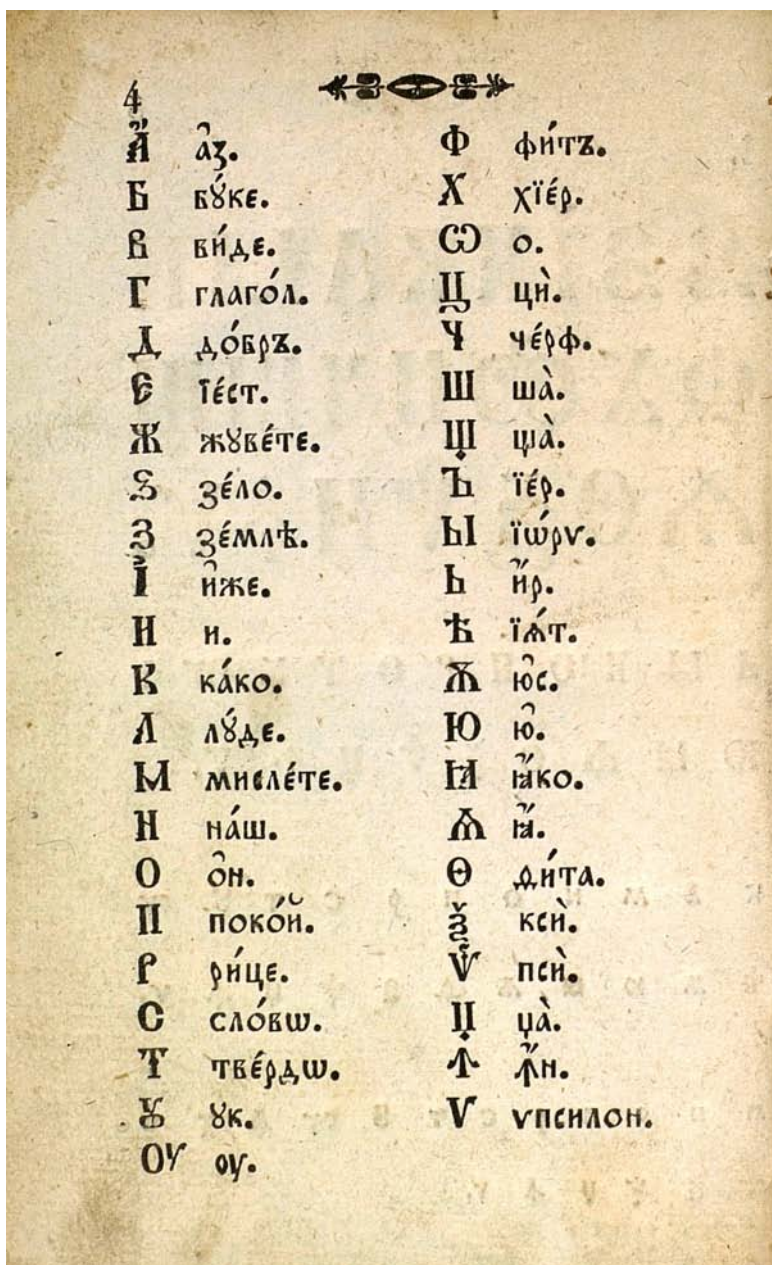 4
А҆́ а҆з.
Б бꙋ́ке.
В ви́де.
Г глаго́л.
Д до́бръ.
Є їе́ст.
Ж жꙋве́те.
Ѕ зе́ло.
З зе́млѣ.
І҆́ и҆же.
И и.
К ка́ко.
Л лꙋ́де.
М мисле́те.
Н на́ш.
О о҆н.
П поко́й.
Р ри́це.
С сло́вѡ.
Т тве́рдѡ.
Ꙋ ꙋк.
ОУ оу.
Ф фи́тъ.
Х хїе́р.
Ѡ о.
Ц цѝ.
Ч че́рф.
Ш ша̀.
Щ ща̀.
Ъ їе́р.
Ы їѡ́рѵ.
Ь и҆́р.
Ѣ їѧ́т.
Ѫ ю҆с.
Ю ю҆.
Ꙗ ꙗ҆́ко.
Ѧ ꙗ҆́.
Ѳ ди́та.
Ѯ ксѝ.
Ѱ псѝ.
Џ џа̀.
Ꙟ ꙟ҆́н.
Ѵ ѵпсилон.